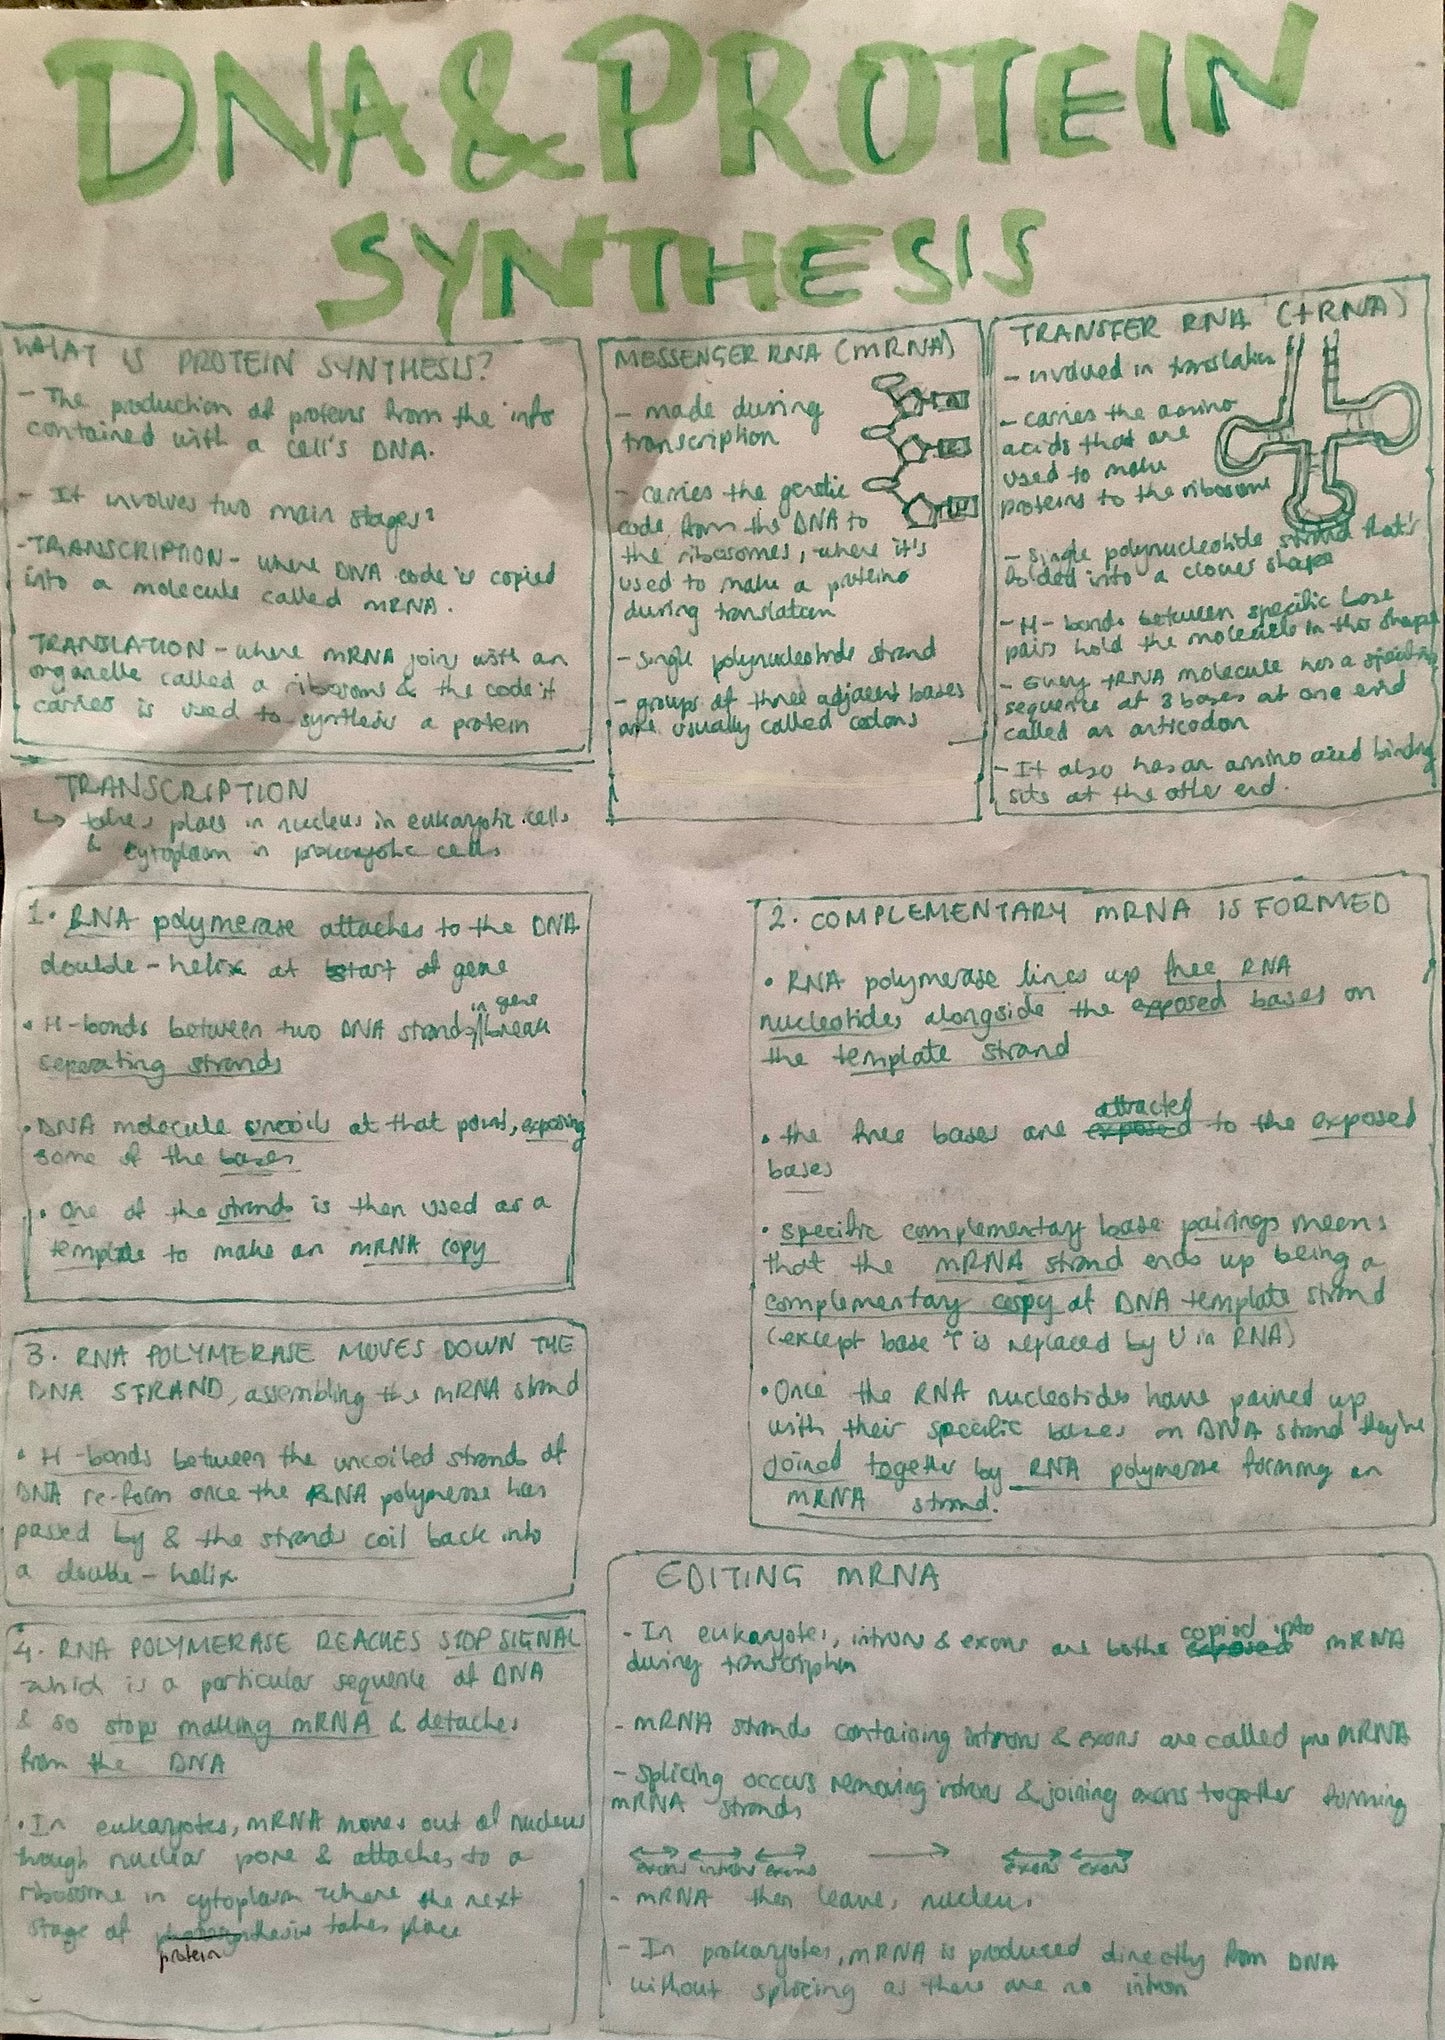 DNA & PROTEIN
SYNTHESIS
WHAT IS PROTEIN SYNTHESIS?
- The production of proteins from the info
contained with a cell's DNA.
- It involves two main stages:
- TRANSCRIPTION - where DNA code is copied
into a molecule called mRNA.
TRANSLATION - where mRNA joins with an
organelle called a ribosome & the code it
carries is used to synthesis a protein
MESSENGER RNA (mRNA)
- made during
transcription
- carries the genetic
code from the DNA to
the ribosomes, where it's
used to make a proteins
during translation
- single polynucleotide strand
- groups of three adjacent bases
are usually called codons
TRANSFER RNA (tRNA)
- involved in translation
- carries the amino
acids that are
used to make
proteins to the ribosome
- single polynucleotide strand that's
folded into a clover shape
- H-bonds between specific base
pairs hold the molecule in this shape
- Every tRNA molecule has a specific
sequence of 3 bases at one end
called an anticodon
- It also has an amino acid binding
site at the other end.
TRANSCRIPTION
↳ takes place in nucleus in eukaryotic cells
& cytoplasm in prokaryotic cells
1. RNA polymerase attaches to the DNA
double-helix at start of gene
in gene
• H-bonds between two DNA strands break
seperating strands
• DNA molecule uncoils at that point, exposing
some of the bases
• One of the strands is then used as a
template to make an mRNA copy
2. COMPLEMENTARY mRNA IS FORMED
• RNA polymerase lines up free RNA
nucleotides alongside the exposed bases on
the template strand
attracted
• the free bases are exposed to the exposed
bases
• specific complementary base pairings means
that the mRNA strand ends up being a
complementary copy of DNA template strand
(except base T is replaced by U in RNA)
• Once the RNA nucleotides have paired up
with their specific bases on DNA strand they're
joined together by RNA polymerase forming an
mRNA strand.
3. RNA POLYMERASE MOVES DOWN THE
DNA STRAND, assembling the mRNA strand
• H-bonds between the uncoiled strands of
DNA re-form once the RNA polymerase has
passed by & the strands coil back into
a double-helix
4. RNA POLYMERASE REACHES STOP SIGNAL
which is a particular sequence of DNA
& so stops making mRNA & detaches
from the DNA
• In eukaryotes, mRNA moves out of nucleus
through nuclear pore & attaches to a
ribosome in cytoplasm where the next
stage of photosynthesis takes place
protein
EDITING mRNA
copied into
- In eukaryotes, introns & exons are both exposed mRNA
during transcription
- mRNA strands containing introns & exons are called pre mRNA
- splicing occurs removing introns & joining exons together forming
mRNA strands
exons introns exons → exons exons
- mRNA then leaves nucleus
- In prokaryotes, mRNA is produced directly from DNA
without splicing as there are no intron